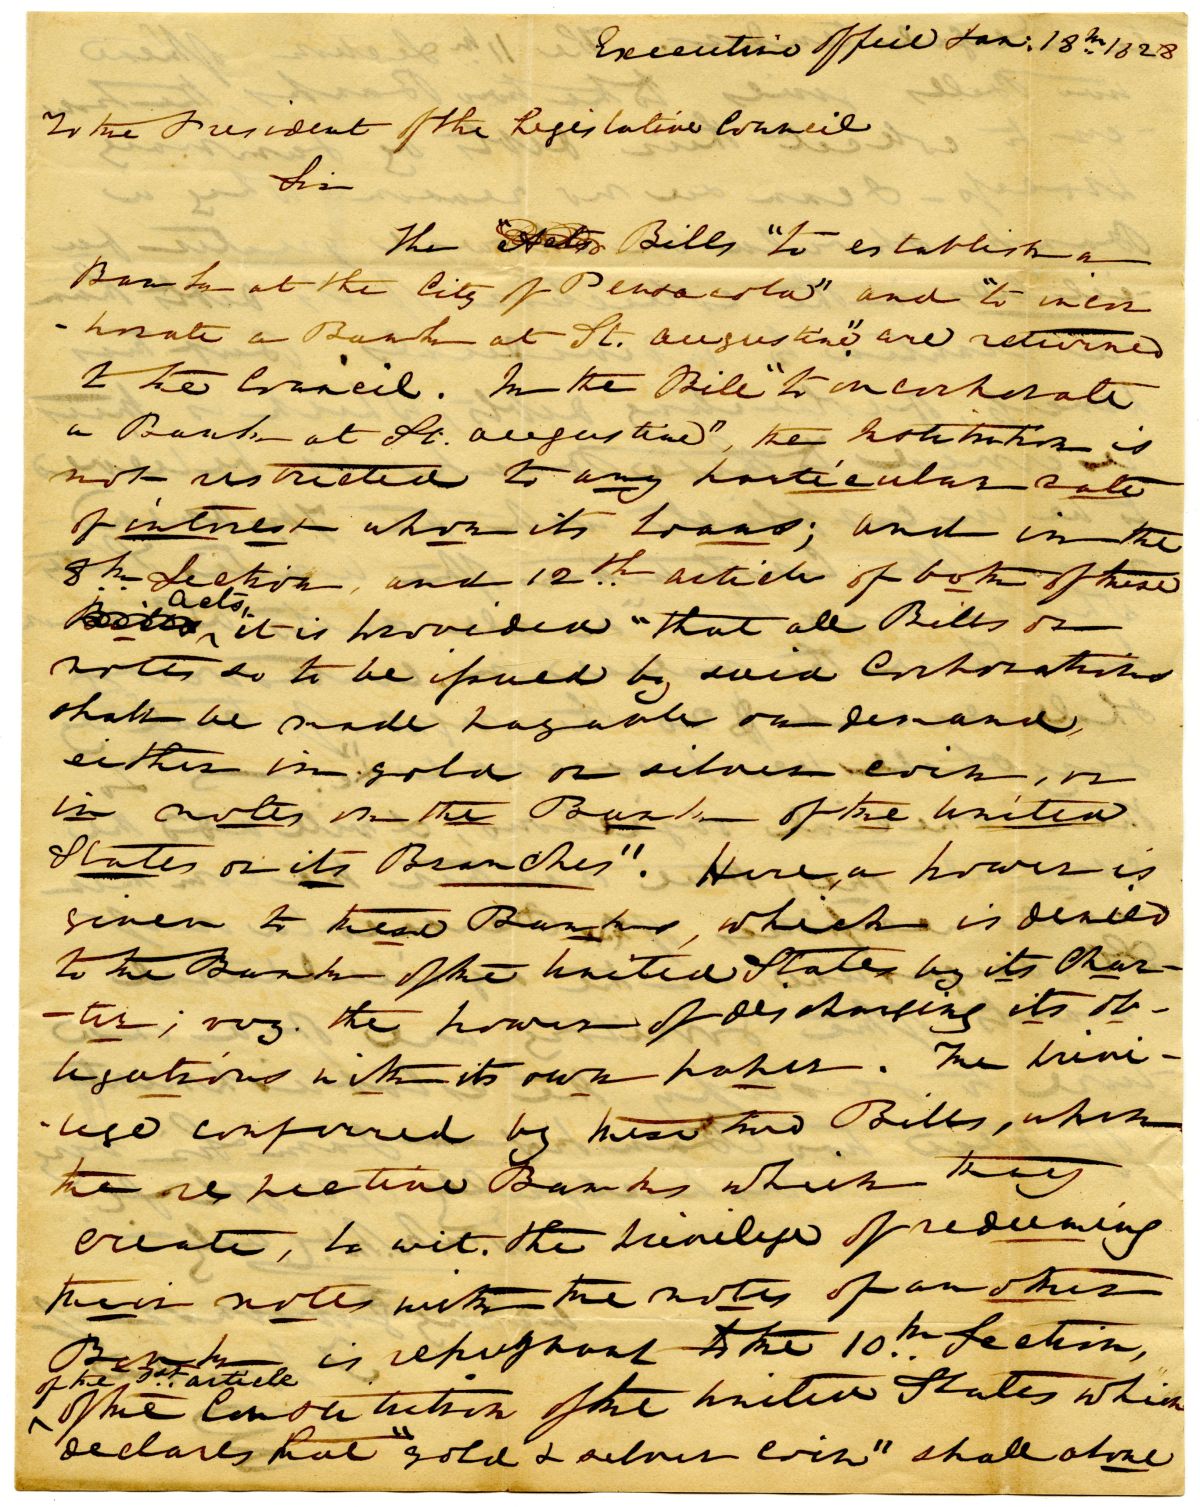 Executive Office Jan: 18th 1828
To the President of the Legislative Council
Sir
The "Acts Bills "to establish a
Bank at the City of Pensacola" and "to incor
-porate a Bank at St. Augustine" are returned
to the Council. In the Bill "to incorporate
a Bank at St. Augustine", the Institution is
not restricted to any particular rate
of interest upon its loans; and in the
8th Section, and 12th article of both of these
Bills acts, it is provided "that all Bills or
notes so to be issued by said Corporations
shall be made payable on demand,
either in gold or silver coin, or
in notes on the Bank of the United
States or its Branches". Here, a power is
given to these Banks, which is denied
to the Bank of the United States by its Char-
-ter; viz. the power of discharging its ob-
ligations with its own paper. The privi-
-lege conferred by these two Bills, upon
the respective Banks which they
create, to wit. the privilege of redeeming
their notes with the notes of another
Bank is repugnant to the 10th Section,
of the 1st article
of the Constitution of the United States which
declares that "gold & silver coin" shall alone